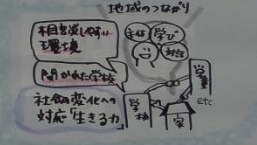 地域のつながり
相談しやすい
環境
開かれた学校
社会の変化への
対応「生きる力」
主体
学び
対話
学童
etc
学校
家